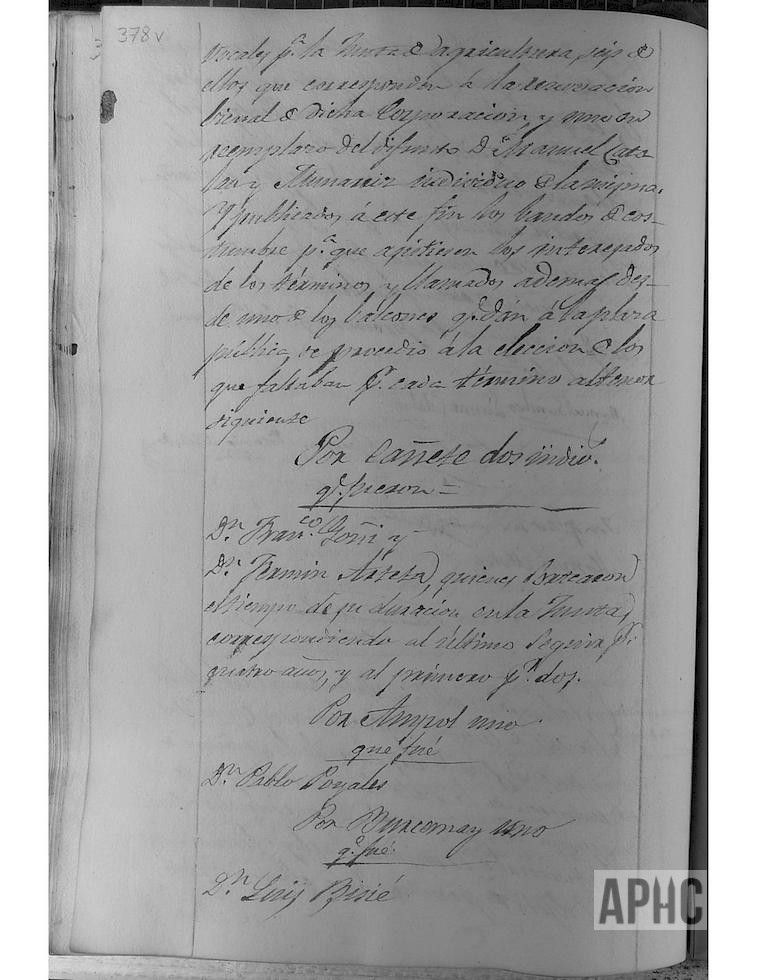 378v
Vocales p.ª la Junta de agricultura, seis de
ellos que corresponden á la renovacion
bienal de dicha Corporacion, y uno en
reemplazo del difunto D.n Manuel Cata-
lan y individuo de la misma.
Y publicados á este fin los bandos de cos-
tumbre p.ª que asistiesen los interesados
de los términos y llamados ademas des-
de uno de los balcones q.e dán á la plaza
pública, se procedio á la eleccion de los
que faltaban p.r cada término al tenor
siguiente
Por Cañete dos indiv.s
q.e fueron =
D.n Fran.co Goñi y
D.n Fermin Arteta, quienes sortearon
el tiempo de su duracion en la Junta,
correspondiendo al último seguir p.r
quatro años, y al primero p.r dos.
Por Ampol uno
que fué
D.n Pablo Poyales
Por uno
q.e fué
D.n Luis Bisié
APHC